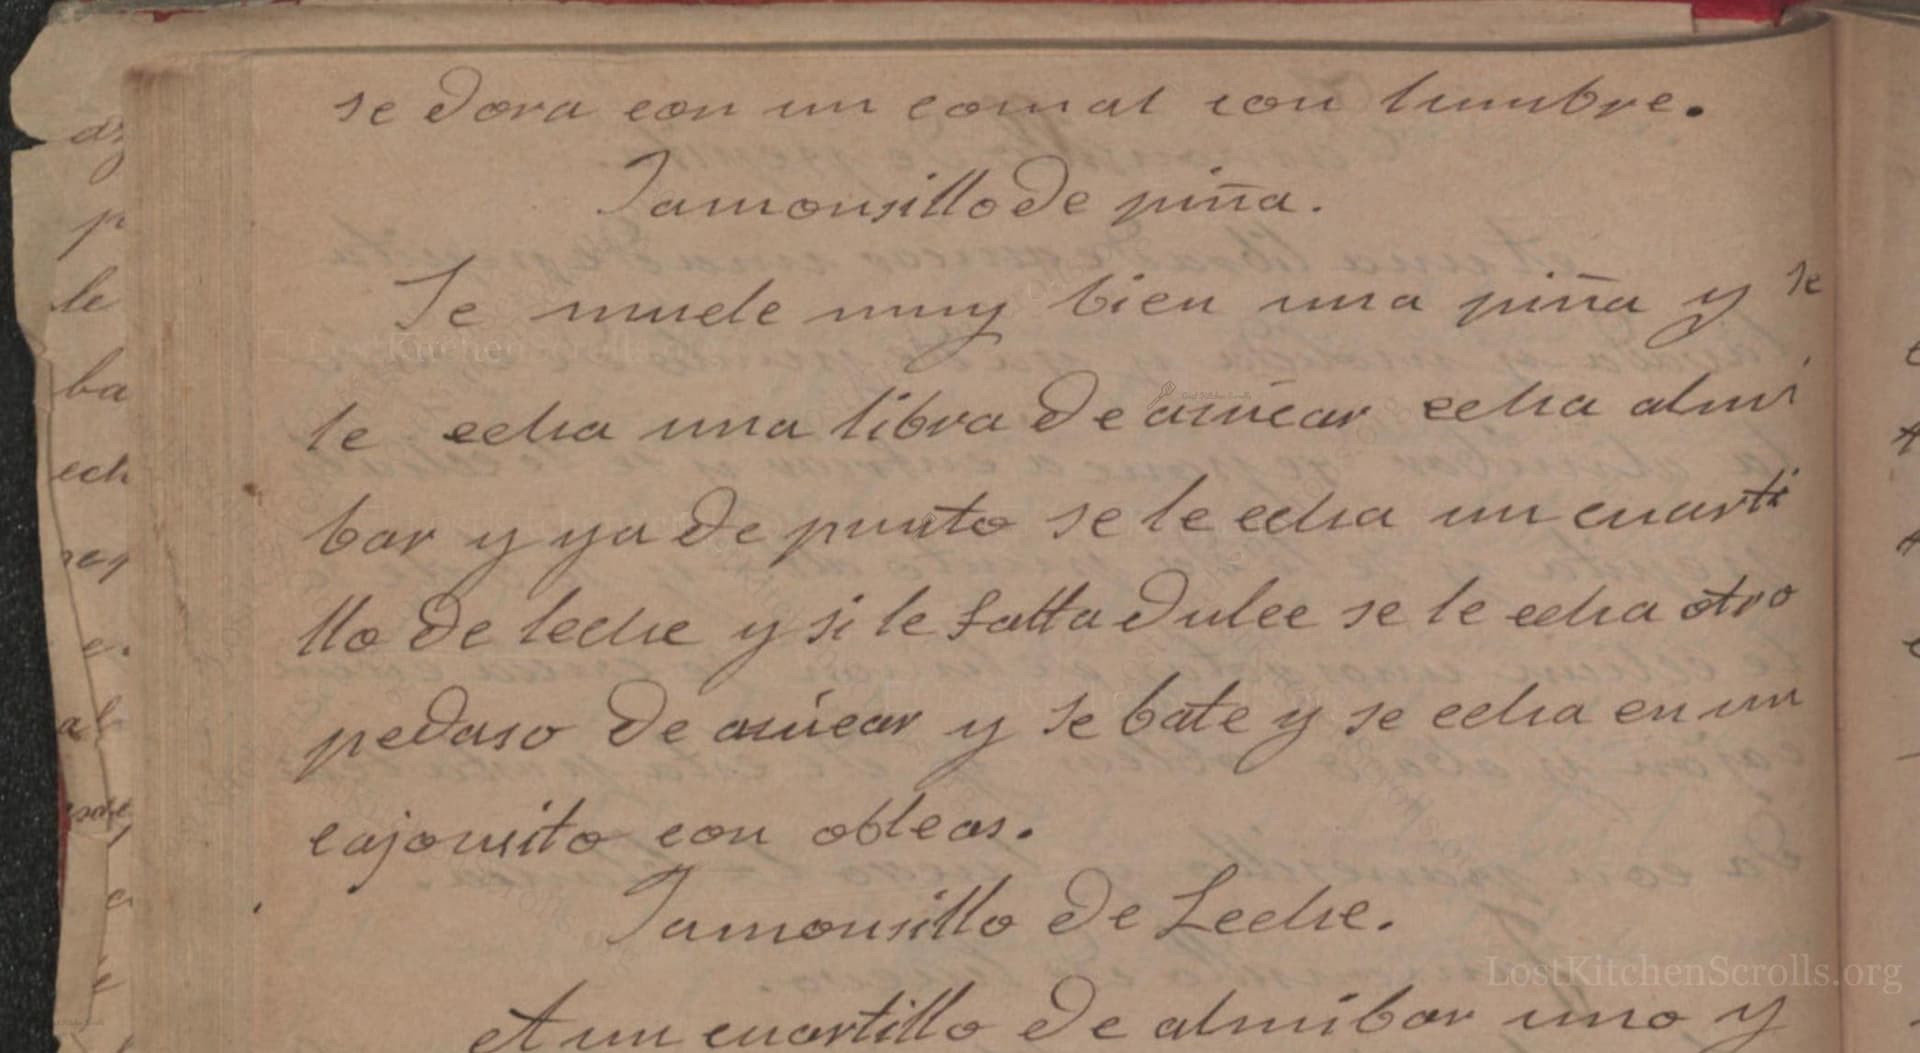 se dora con un comal con lumbre.
Jamonsillo de piña.
Se muele muy bien una piña y se
le echa una libra de asúcar echa almi
bar y ya de punto se le echa un cuarti
llo de leche y si le falta dulce se le echa otro
pedaso de asúcar y se bate y se echa en un
cajonsito con obleas.
Jamonsillo de Leche.
A un cuartillo de almibar uno y
p
le
ba
ech
LostKitchenScrolls.org